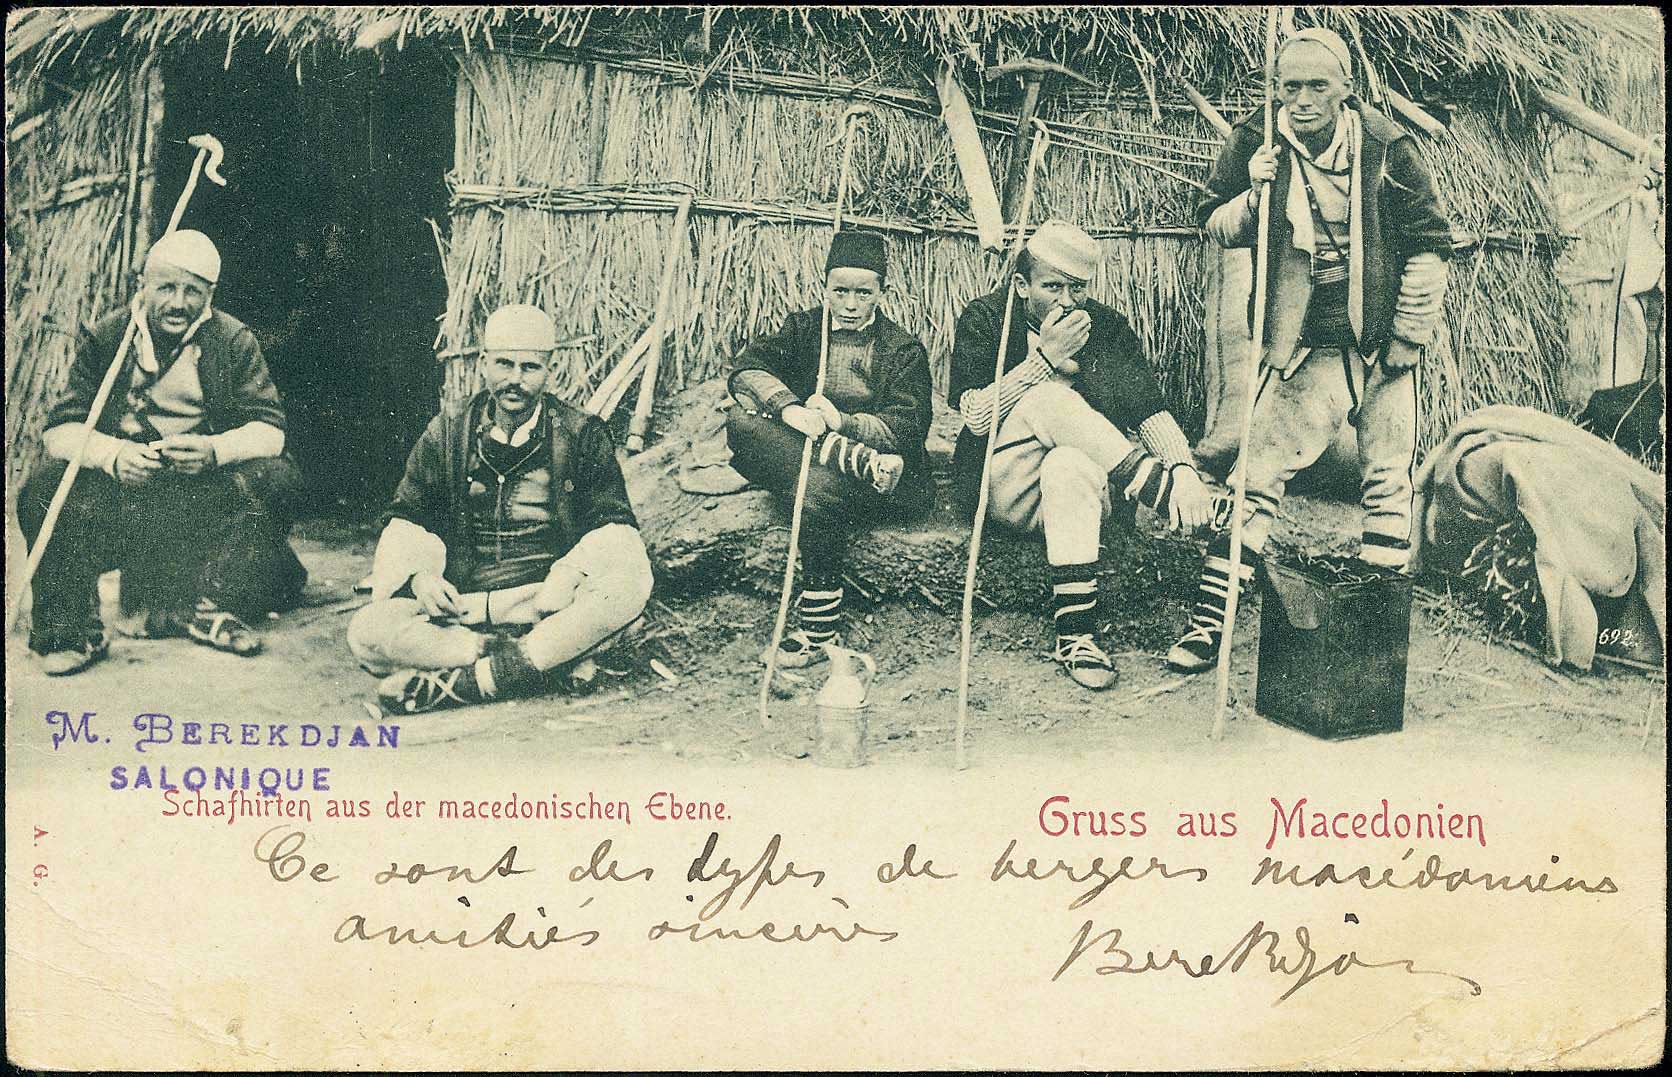 692.
M. BEREKDJAN
SALONIQUE
Schafhirten aus der macedonischen Ebene.
Gruss aus Macedonien
A. G.
Ce sont des types de bergers macédoniens
amitiés sincères
Berekdjan